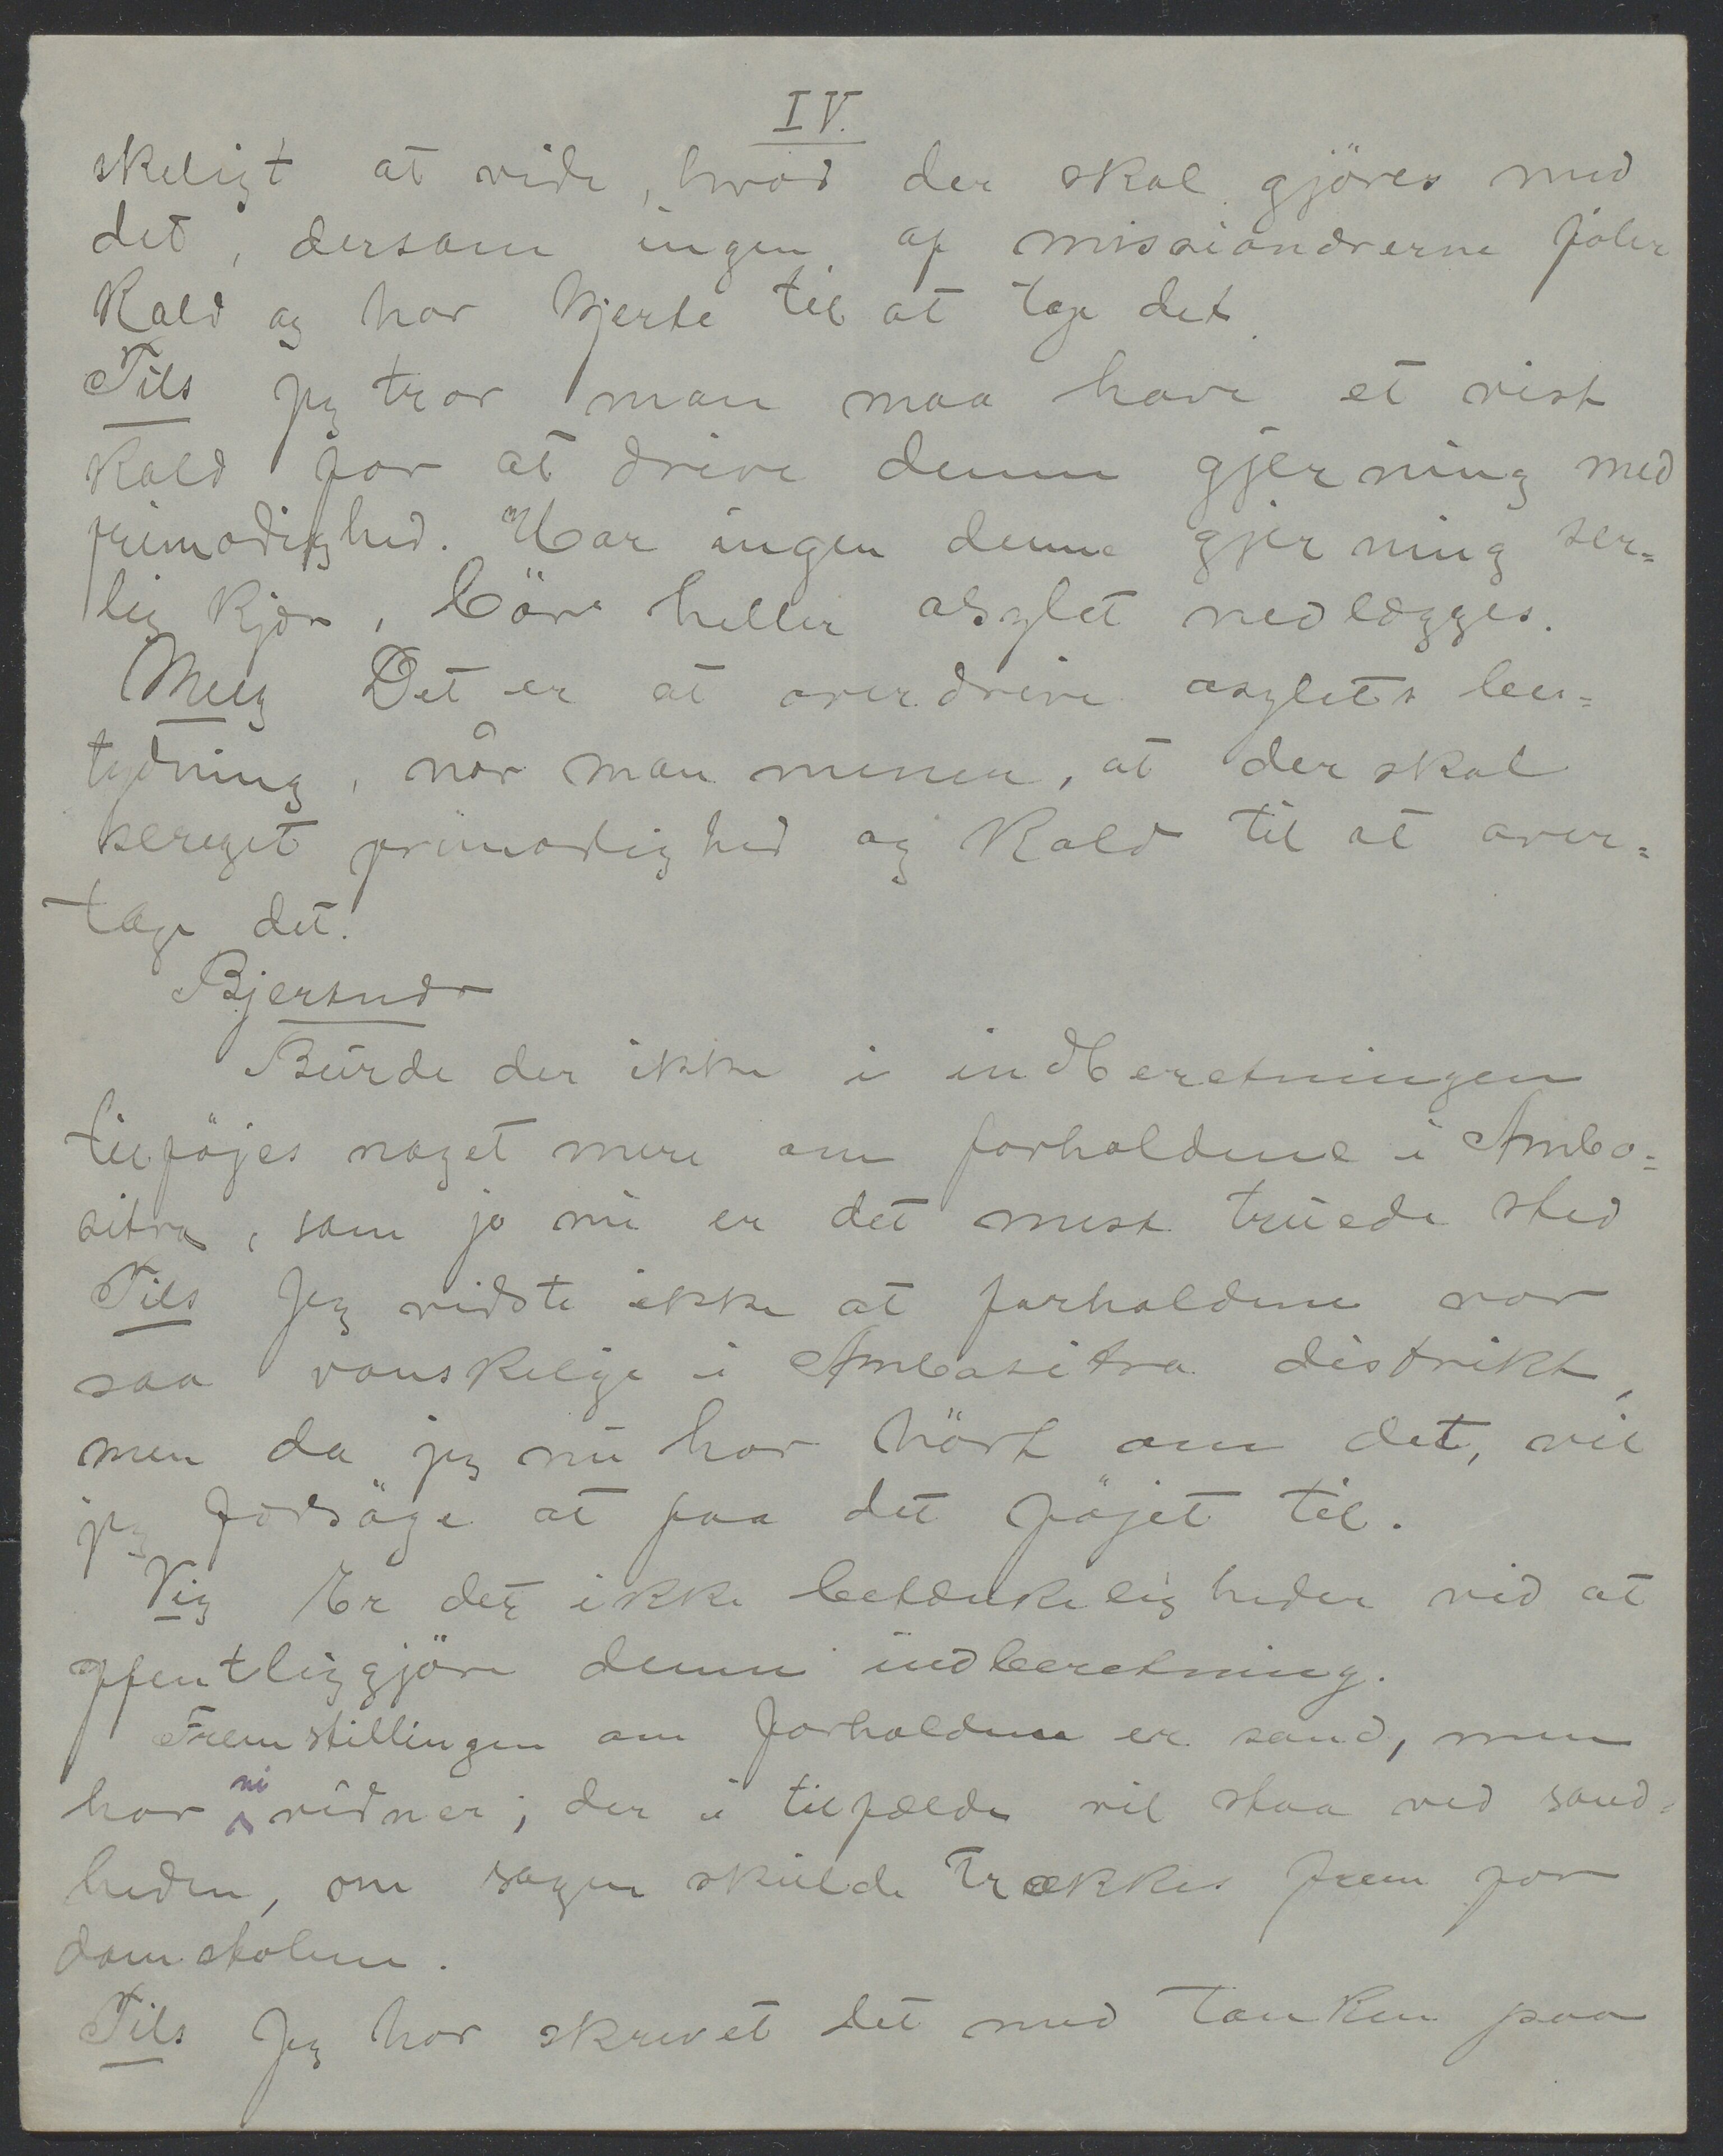 IV.
skeligt at vide, hvad der skal gjöres med
det, dersom ingen af missionærerne föler
Kald og har hjerte til at tage det.
Tils Jeg tror man maa have et vist
Kald for at drive denne gjerning med
frimodighed. Har ingen denne gjerning sær=
lig kjær, bör heller asylet nedlægges.
Meeg Det er at overdrive asylets be=
tydning, når man mener, at der skal
sereget frimodighed og Kald til at over=
tage det.
Bjertnæs
Burde der ikke i indberetningen
tilföjes noget mere om forholdene i Ambo=
sitra, som jo nu er det mest truede sted
Tils Jeg vidste ikke at forholdene var
saa vanskelige i Ambositra distrikt,
men da jeg nu har hört om det, vil
jeg forsöge at faa det föjet til.
Vig Er det ikke betænkeligheder ved at
offentliggjöre denne indberetning.
Fremstillingen om forholdene er sand, men
har vi vidner; der i tilfælde vil staa ved sand=
heden, om sagen skulde trækkes frem for
domstolene.
Tils Jeg har skrevet det med tanken paa